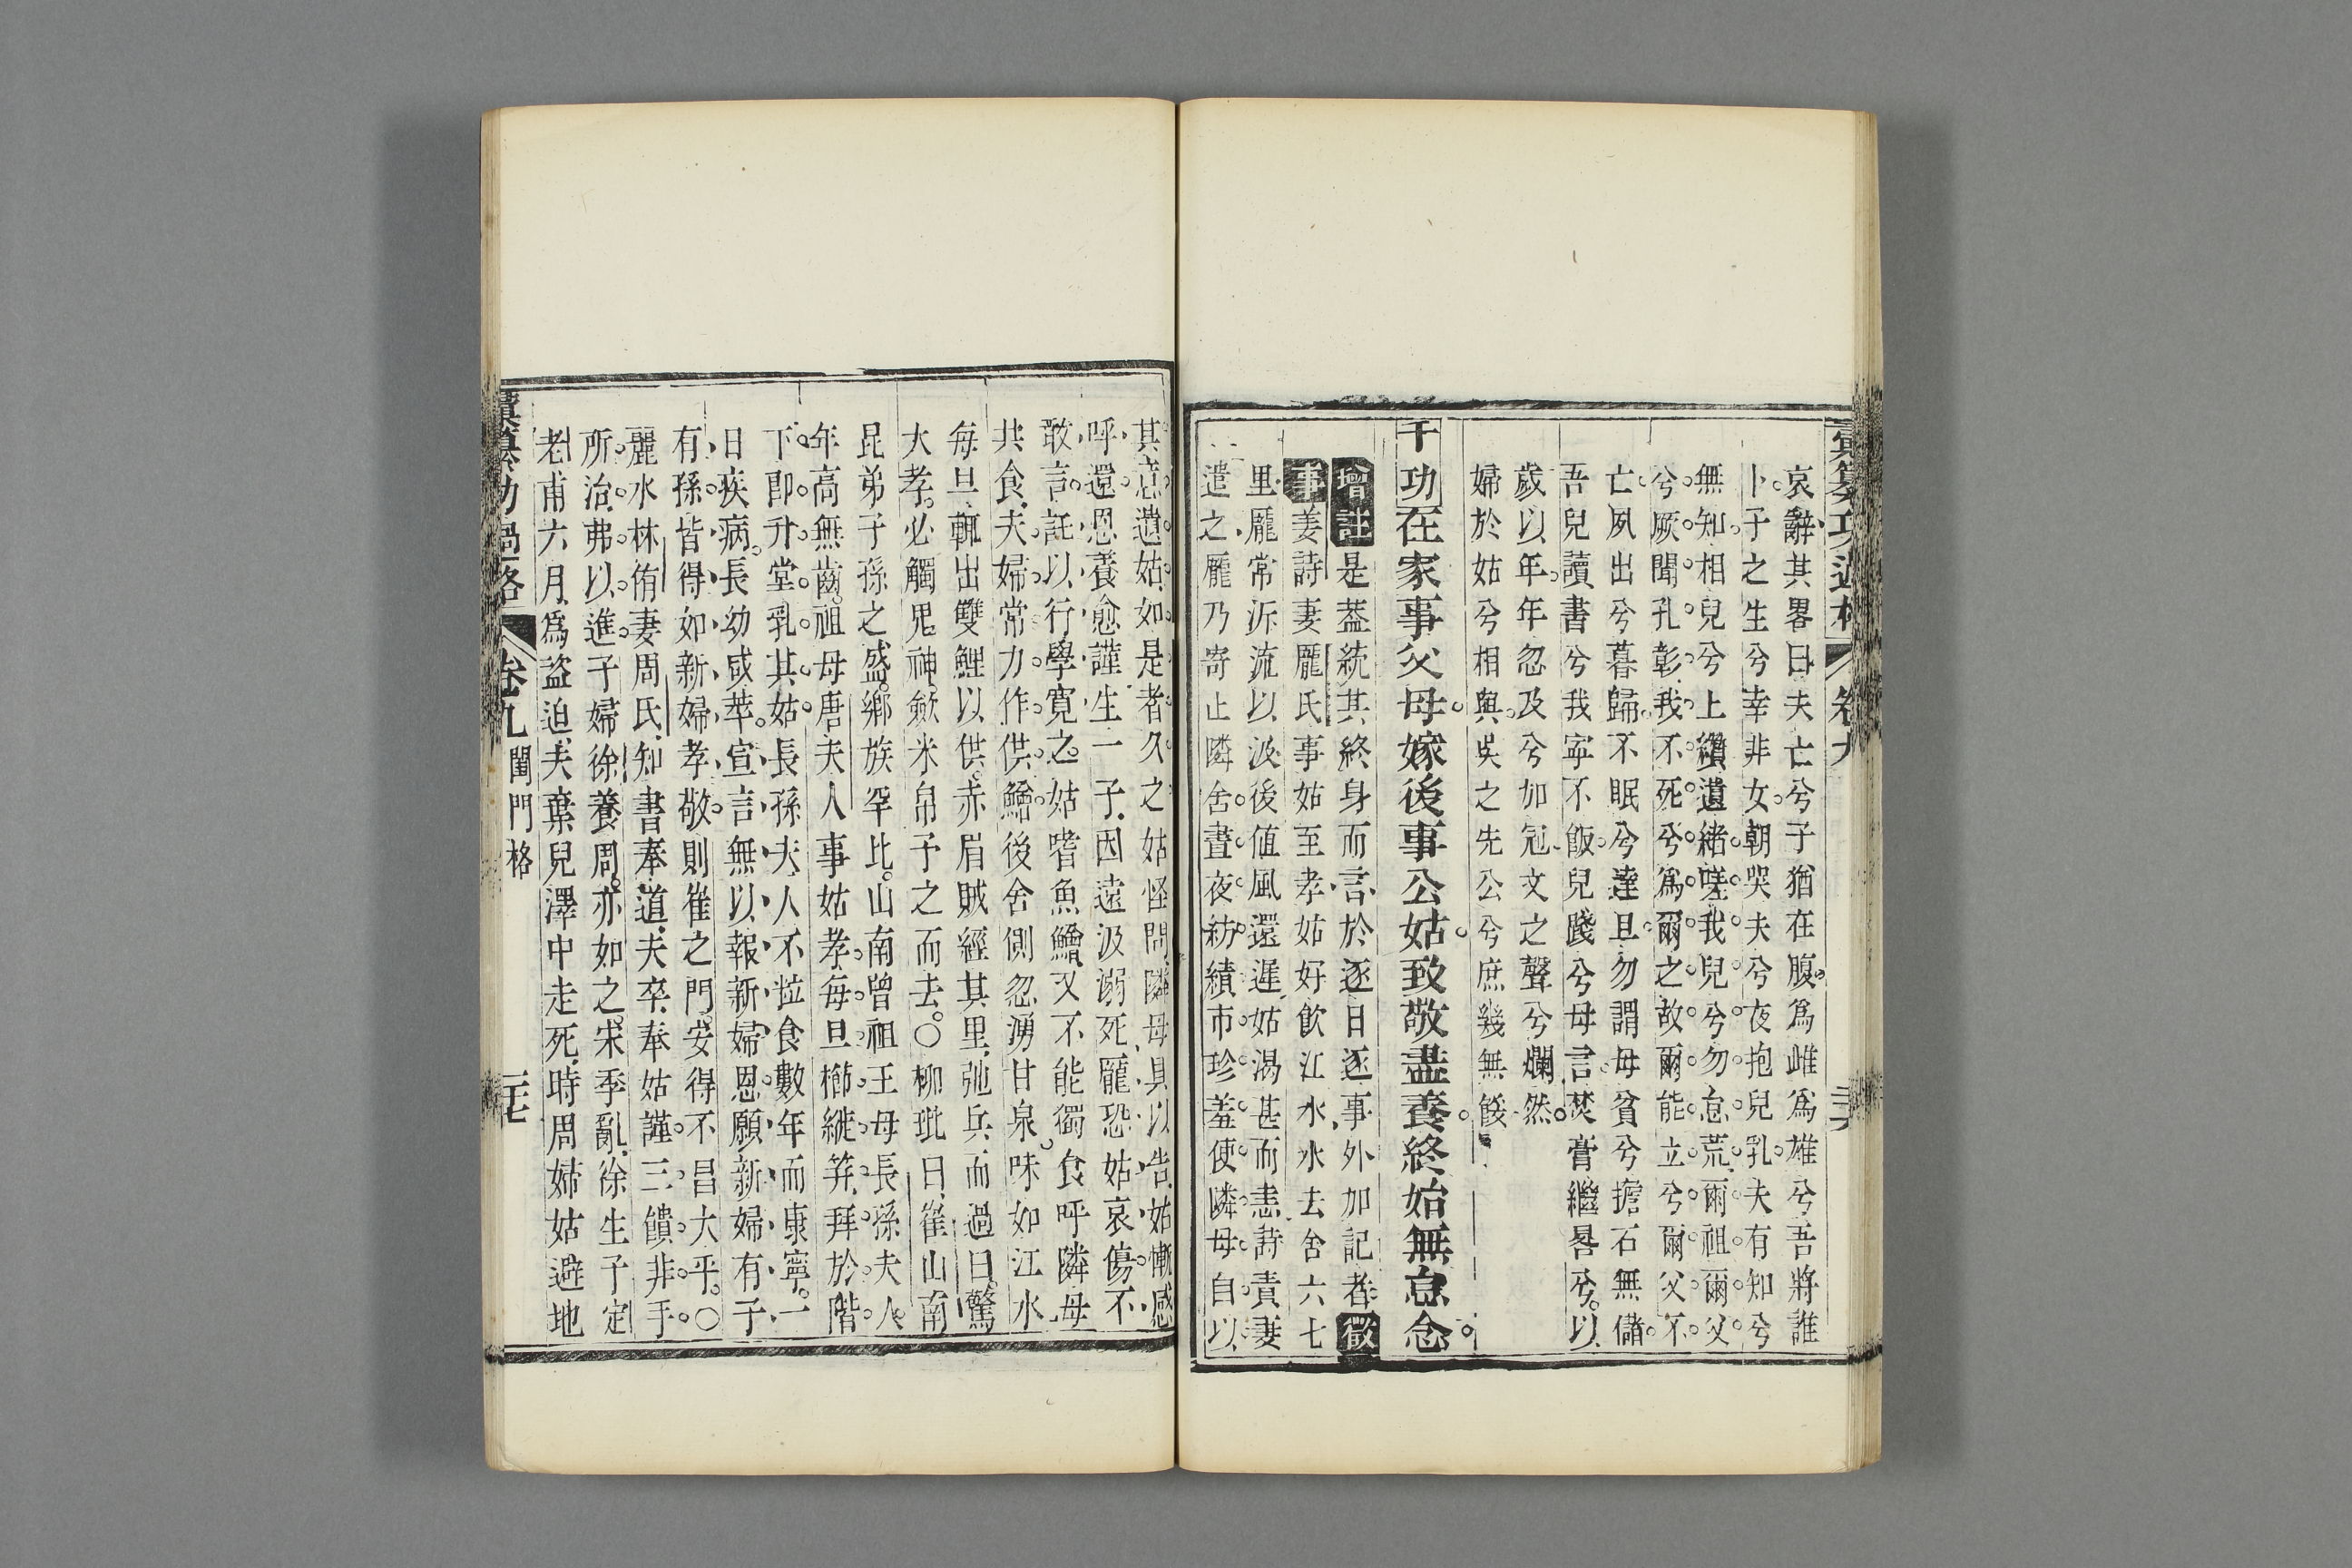 彙纂功過格 卷九 三十六
哀辭其畧曰夫亡兮子猶在腹爲雌爲雄兮吾將誰
卜子之生兮幸非女朝哭夫兮夜抱兒乳夫有知兮
無知相兒兮上纘遺緒嗟我兒兮勿怠荒爾祖爾父
兮厥聞孔彰我不死兮爲爾之故爾能立兮爾父不
亡夙出兮暮歸不眠兮達旦勿謂母貧兮擔石無儲
吾兒讀書兮我寧不飯兒踐兮母言焚膏繼晷兮以
歲以年年忽及兮加冠文之聲兮爛然
婦於姑兮相與吳之先公兮庶幾無餒
千功在家事父母嫁後事公姑致敬盡養終始無怠念
增註是葢統其終身而言於逐日逐事外加記者徵
事姜詩妻龎氏事姑至孝姑好飲江水水去舍六七
里龎常泝流以汲後值風還遲姑渴甚而恚詩責妻
遣之龎乃寄止隣舍晝夜紡績市珍羞使隣母自以
其意遺姑如是者久之姑怪問隣母具以告姑慚感
呼還恩養愈謹生一子因遠汲溺死龎恐姑哀傷不
敢言託以行學寛之姑嗜魚鱠又不能獨食呼隣母
共食夫婦常力作供鱠後舍側忽湧甘泉味如江水
每旦輒出雙鯉以供赤眉賊經其里弛兵而過曰驚
大孝必觸鬼神斂米帛予之而去〇柳玭曰崔山南
昆弟子孫之盛鄉族罕比山南曾祖王母長孫夫人
年高無齒祖母唐夫人事姑孝每旦櫛縰笄拜於階
下卽升堂乳其姑長孫夫人不粒食數年而康寧一
日疾病長幼咸萃宣言無以報新婦恩願新婦有子
有孫皆得如新婦孝敬則崔之門安得不昌大平〇
麗水林侑妻周氏知書奉道夫卒奉姑謹三饋非手
所治弗以進子婦徐養周亦如之宋季亂徐生子定
老甫六月爲盜迫夫棄兒澤中走死時周婦姑避地
彙纂功過格 卷九 閨門格 三十七